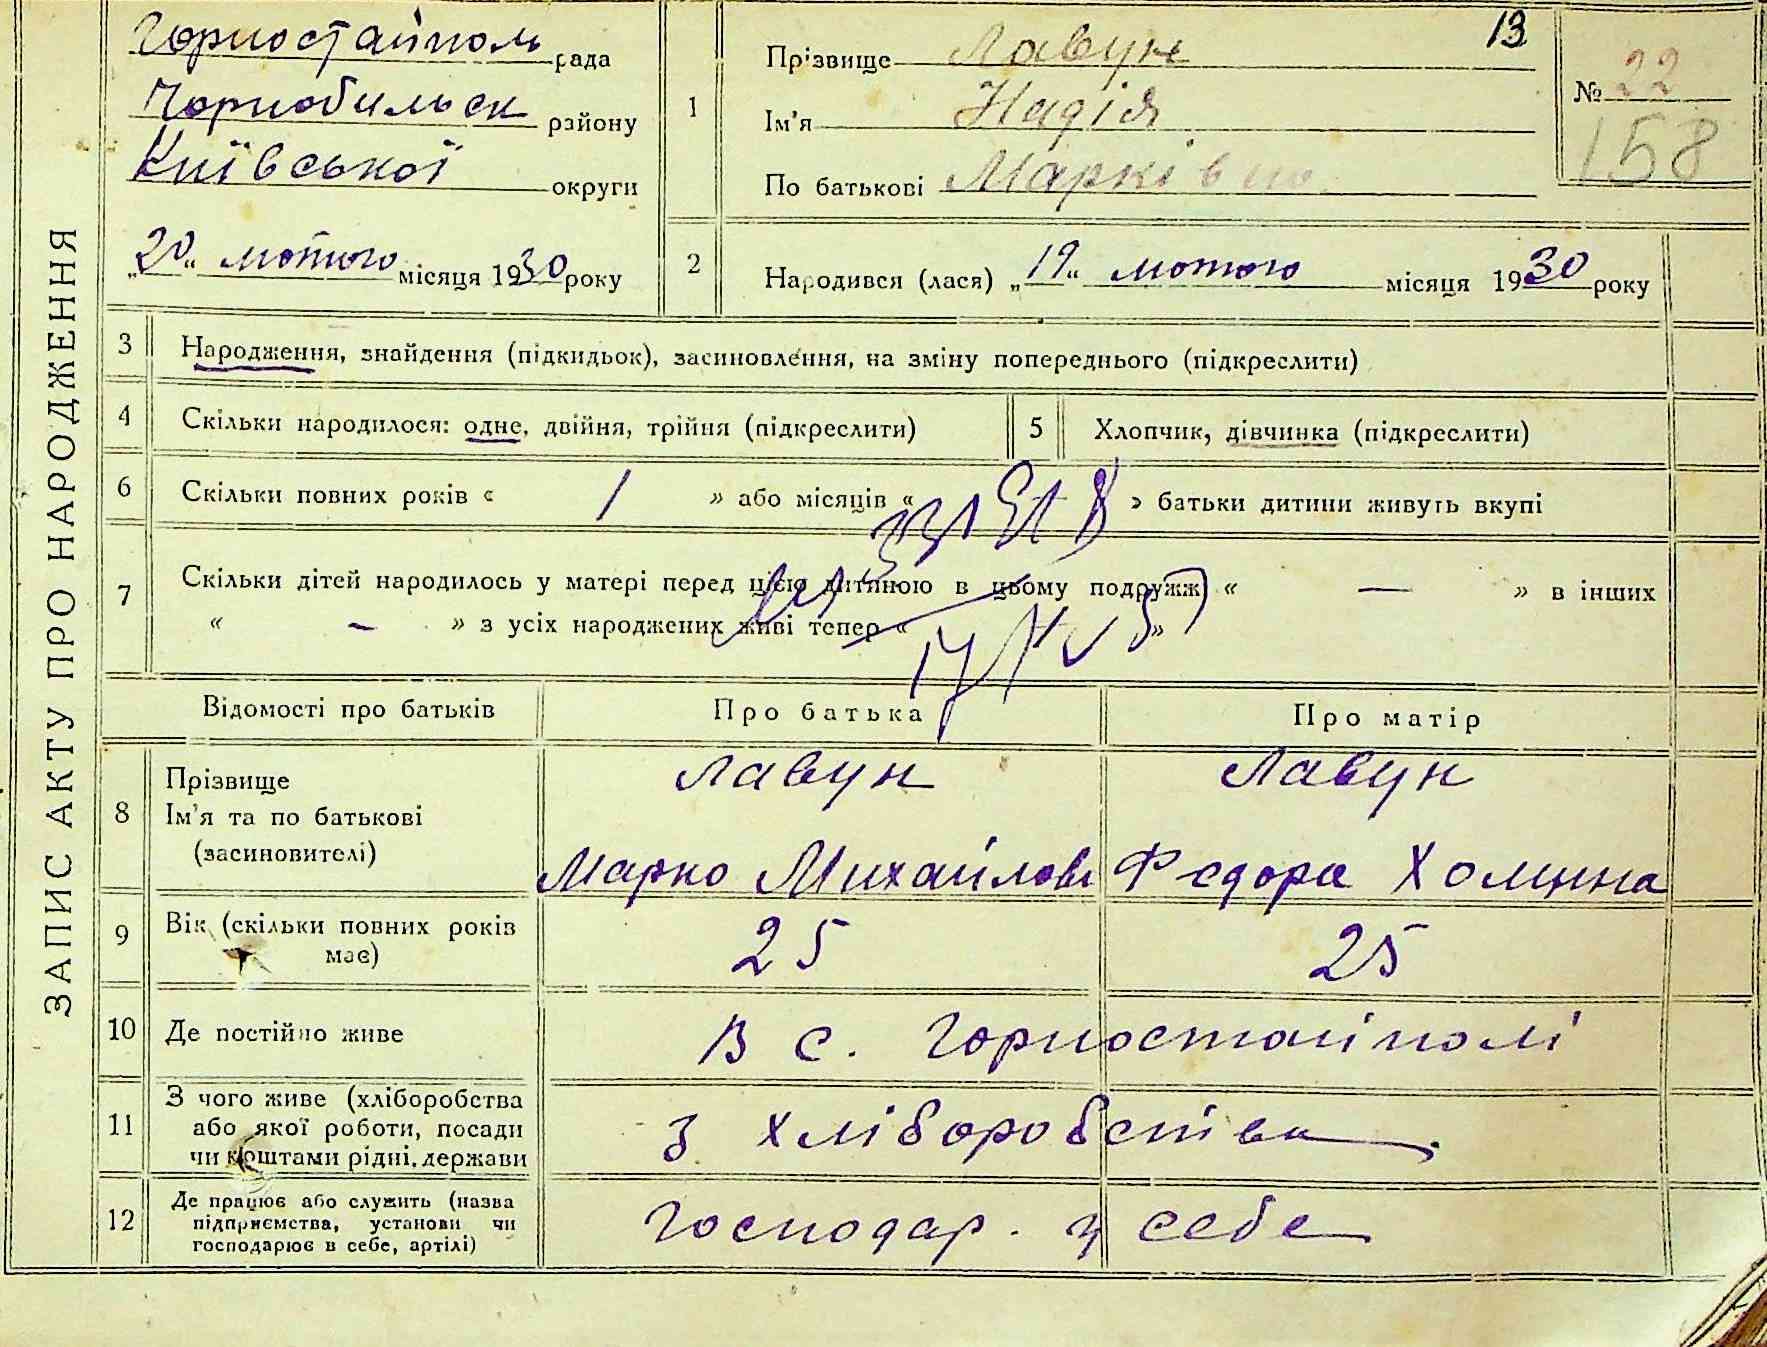 ЗАПИС АКТУ ПРО НАРОДЖЕННЯ
Горностайполь рада
Чорнобильск району
Київської округи
„20“ лютого місяця 1930 року
13
1 Прізвище Лавун
Ім'я Надія
По батькові Марківна
№ 22
158
2 Народився (лася) „19“ лютого місяця 1930 року
3 Народження, знайдення (підкидьок), засиновлення, на зміну попереднього (підкреслити)
4 Скільки народилося: одне, двійня, трійня (підкреслити)
5 Хлопчик, дівчинка (підкреслити)
6 Скільки повних років « 1 » або місяців « » батьки дитини живуть вкупі
7 Скільки дітей народилось у матері перед цією дитиною в цьому подружж « — » в інших
« – » з усіх народжених живі тепер « »
Відомості про батьків Про батька Про матір
8 Прізвище Лавун Лавун
Ім'я та по батькові
(засиновителі) Марко Михайлов Федора Хомина
9 Вік (скільки повних років має) 25 25
10 Де постійно живе В с. Горностайполі
11 З чого живе (хліборобства
або якої роботи, посади
чи коштами рідні, держави з хліборобства
12 Де працює або служить (назва
підприємства, установи чи
господарює в себе, артілі) Господар. у себе